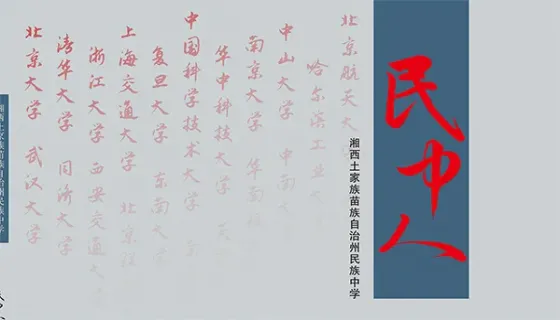 民中人
湘西土家族苗族自治州民族中学
北京大学 武汉大学
清华大学 同济大学
浙江大学 西安交通大
上海交通大学 北京
复旦大学 东南大学
中国科学技术大学
华中科技大学
南京大学 华南
中山大学 中南
哈尔滨工业
北京航天大
湘西土家族苗族自治州民族中学